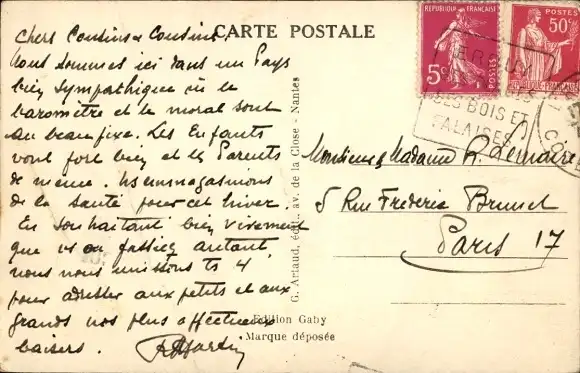 CARTE POSTALE
Chers Cousins & Cousine.
Nous sommes ici dans un Pays
bien sympathique où le
baromètre et le moral sont
au beau fixe. Les Enfants
vont fort bien et les Parents
de meme. ns emmagasinons
de la santé pour cet hiver.
En souhaitant bien vivement
que vs en fassiez autant,
nous nous unissons ts 4
pour adresser aux petits et aux
grands nos plus affectueux
baisers.
G. Artaud, édit., av. de la Close - Nantes
Edition Gaby
Marque déposée
REPUBLIQUE FRANÇAISE
5c
POSTES
POSTES
50c
REPUBLIQUE FRANÇAISE
SES BOIS ET
FALAISES
Monsieur & Madame R. Lemaire
5 Rue Frédéric Brunet
Paris 17